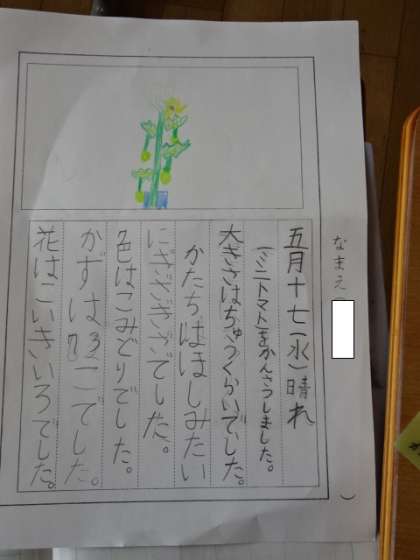 なまえ（　　）
五月十七（水）晴れ
（ミニトマト）をかんさつしました。
大きさはちゅうくらいでした。
かたちはほしみたい
にぎざぎざでした。
色はこみどりでした。
かずは3こでした。
花はこいきいろでした。